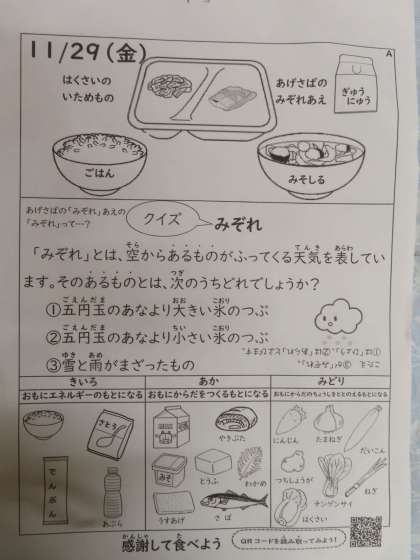 11/29(金)
A
はくさいの
いためもの
あげさばの
みぞれあえ
ぎゅう
にゅう
ごはん
みそしる
あげさばの「みぞれ」あえの
「みぞれ」って…?
クイズ
みぞれ
「みぞれ」とは、空からあるものがふってくる天気を表してい
ます。そのあるものとは、次のうちどれでしょうか?
①五円玉のあなより大きい氷のつぶ
②五円玉のあなより小さい氷のつぶ
③雪と雨がまざったもの
こたえ ③が「みぞれ」。
①は「ひょう」、②は「あられ」といいます。
きいろ
おもにエネルギーのもとになる
あか
おもにからだをつくるもとになる
みどり
おもにからだのちょうしをととのえるもとになる
さとう
でんぷん
あぶら
やきぶた
みそ
とうふ
わかめ
うすあげ
さば
にんじん
たまねぎ
だいこん
つちしょうが
チンゲンサイ
ねぎ
はくさい
感謝して食べよう
QRコードを読み取ってみよう!